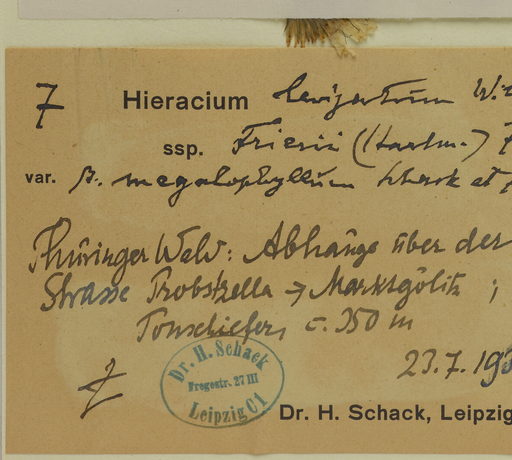 7 Hieracium levigatum W
ssp. Friesii (Hartm.)
var. β. megalophyllum Schack et
Thüringer Wald: Abhänge über der
Strasse Probstzella → Marktgölitz ;
Tonschiefer, c. 350 m
23.7.193
Dr. H. Schack
Fregestr. 27 III
Leipzig C1
Dr. H. Schack, Leipzig